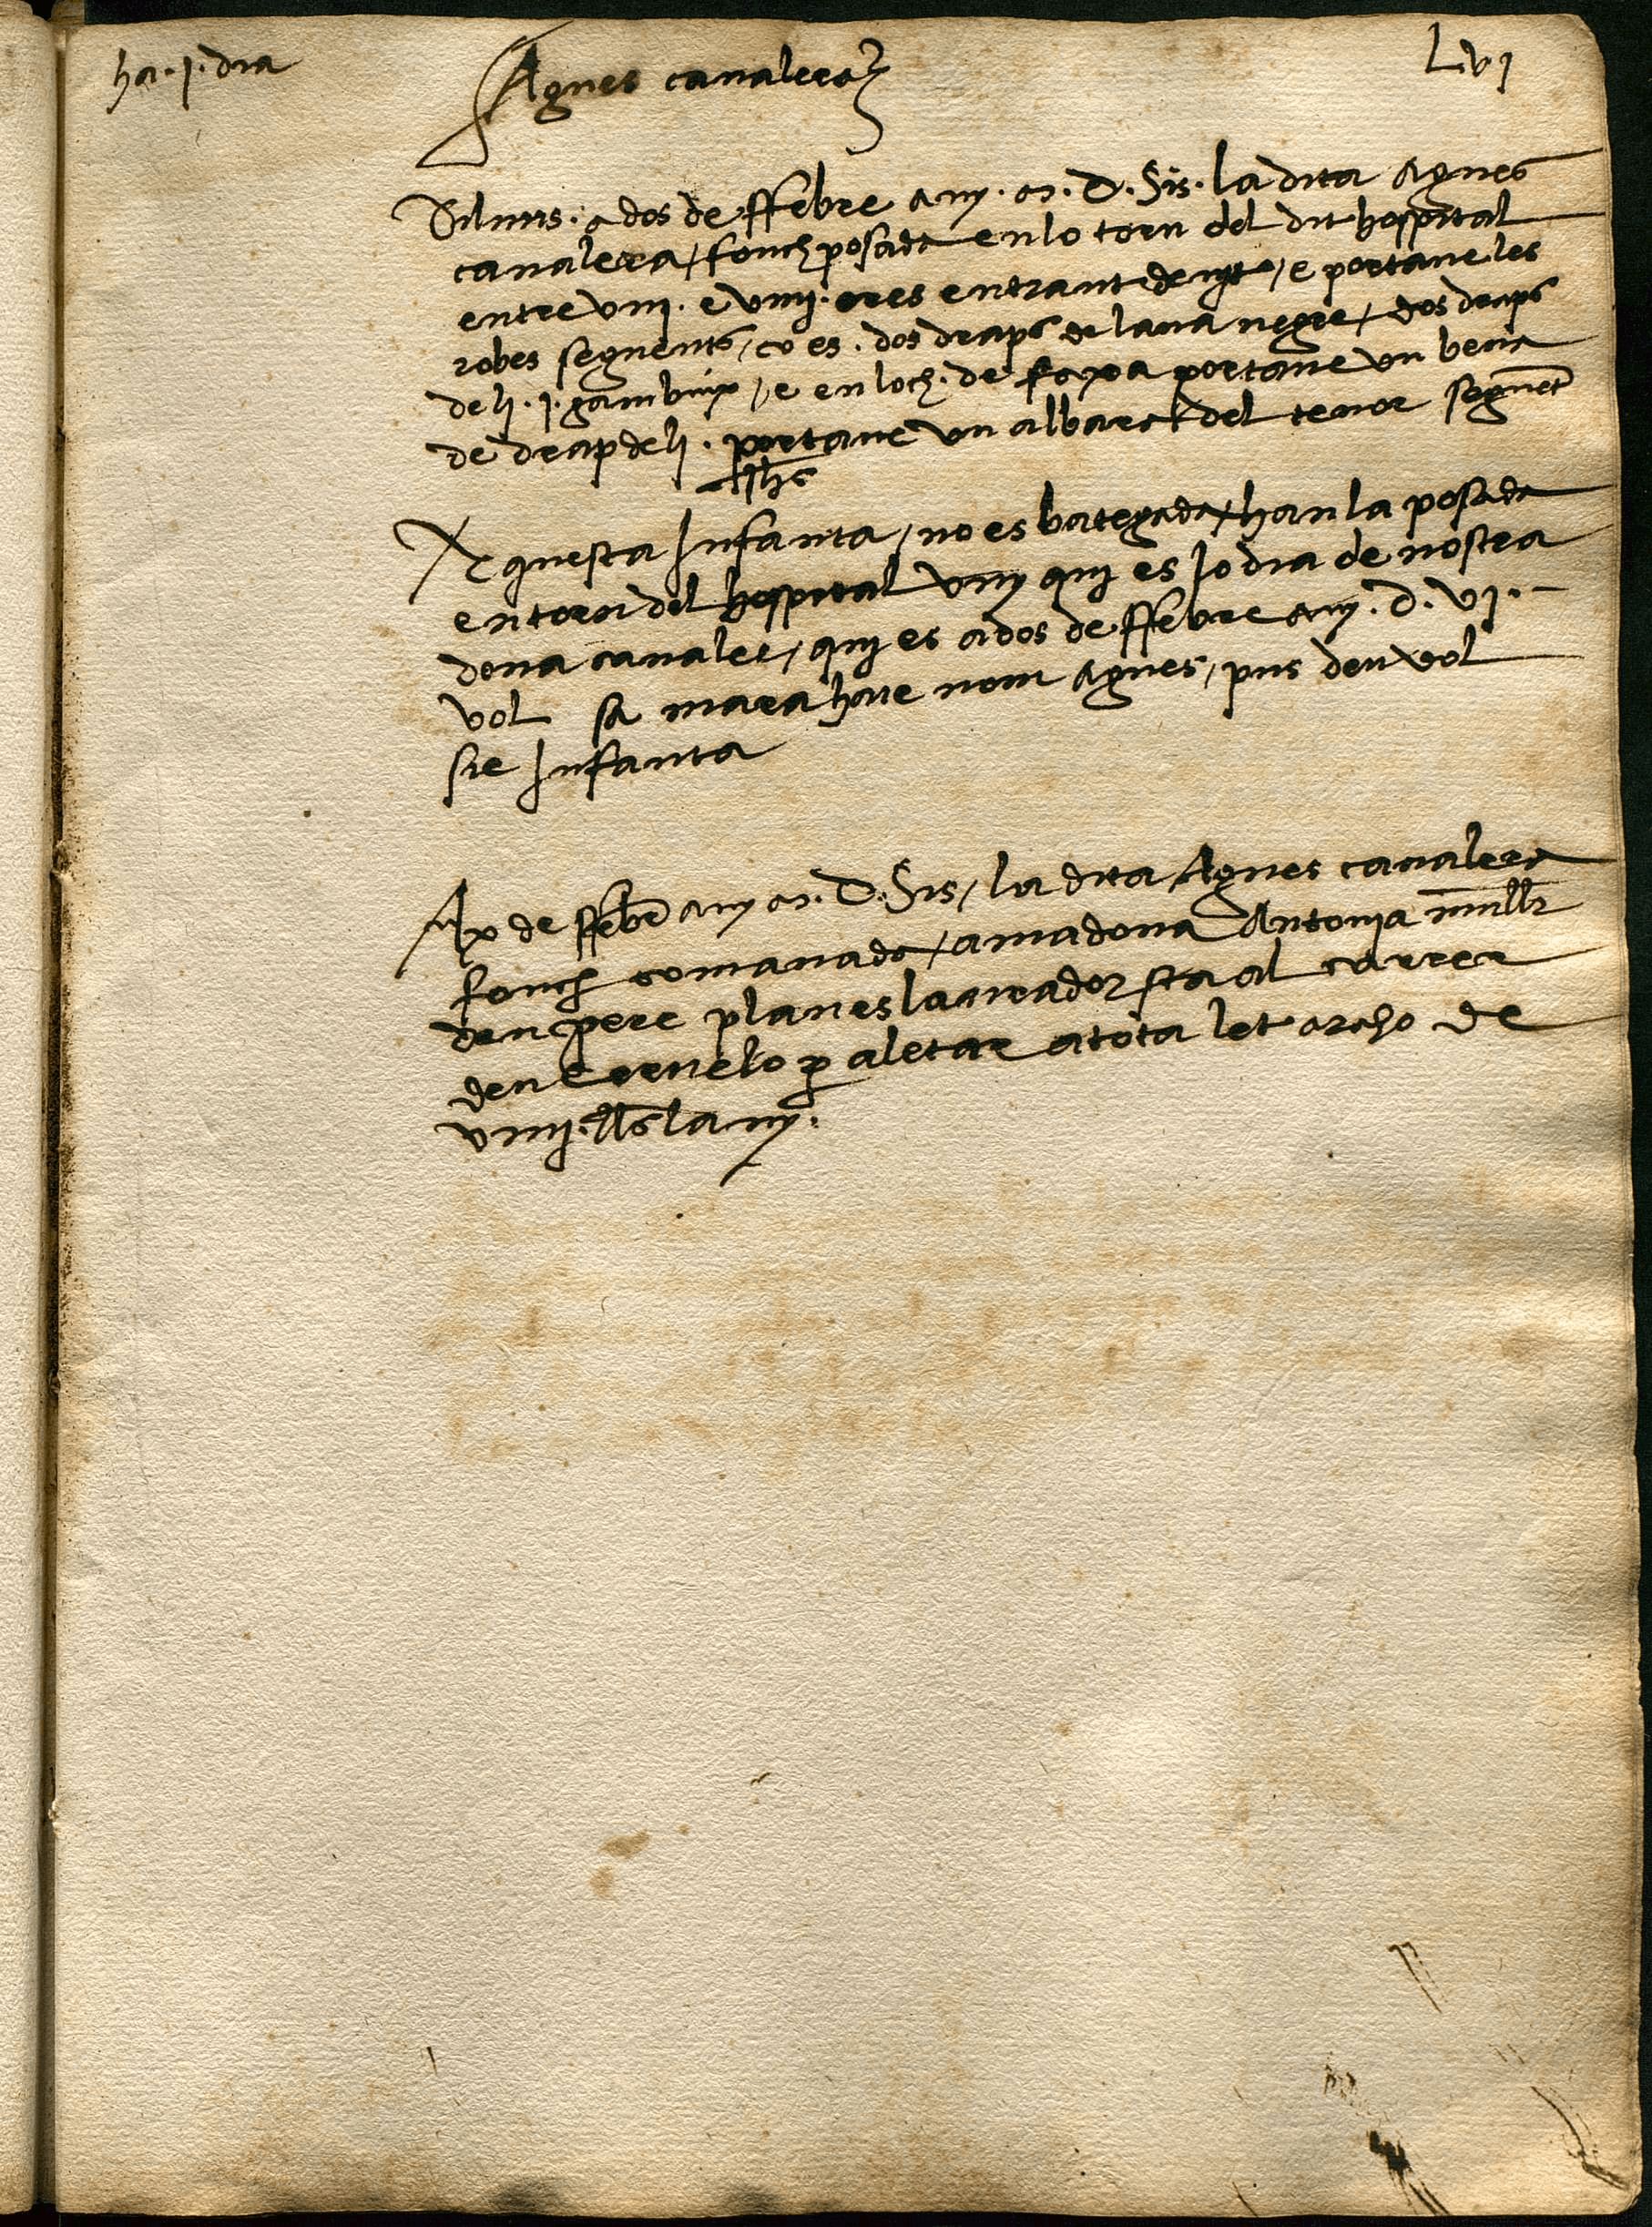 ha · j · dia
Agnes canalera
Lvj
Diluns · a dos de ffebre any · M · D · Sis · la dita Agnes
canalera / fonch posada en lo torn del dit hospital
entre viij · e viiij · ores entrant de nyt / e portave les
robes seguents / ço es · dos draps de lana negre / dos draps
de li · j · gambuix / e en loch · de faxa portave un bena
de drap de li · portave un albara del tenor seguēt
Jhs
Aquesta Infanta / no es bategada / han la posada
en torn del hospital vuy quj es lo dia de nostra
dona canaler / quj es a dos de ffebre any · D · vj · –
vol sa mara haie nom Agnes / pus deu vol
sie Infanta
A x de ffebrē any M · D · Sis / la dita Agnes canalera
fonch comanada / a madona Antonja mullr
den pere planes laurador sta al carrer
den Cornelo p aletar a tota let a raho de
viiij · lls lany ·